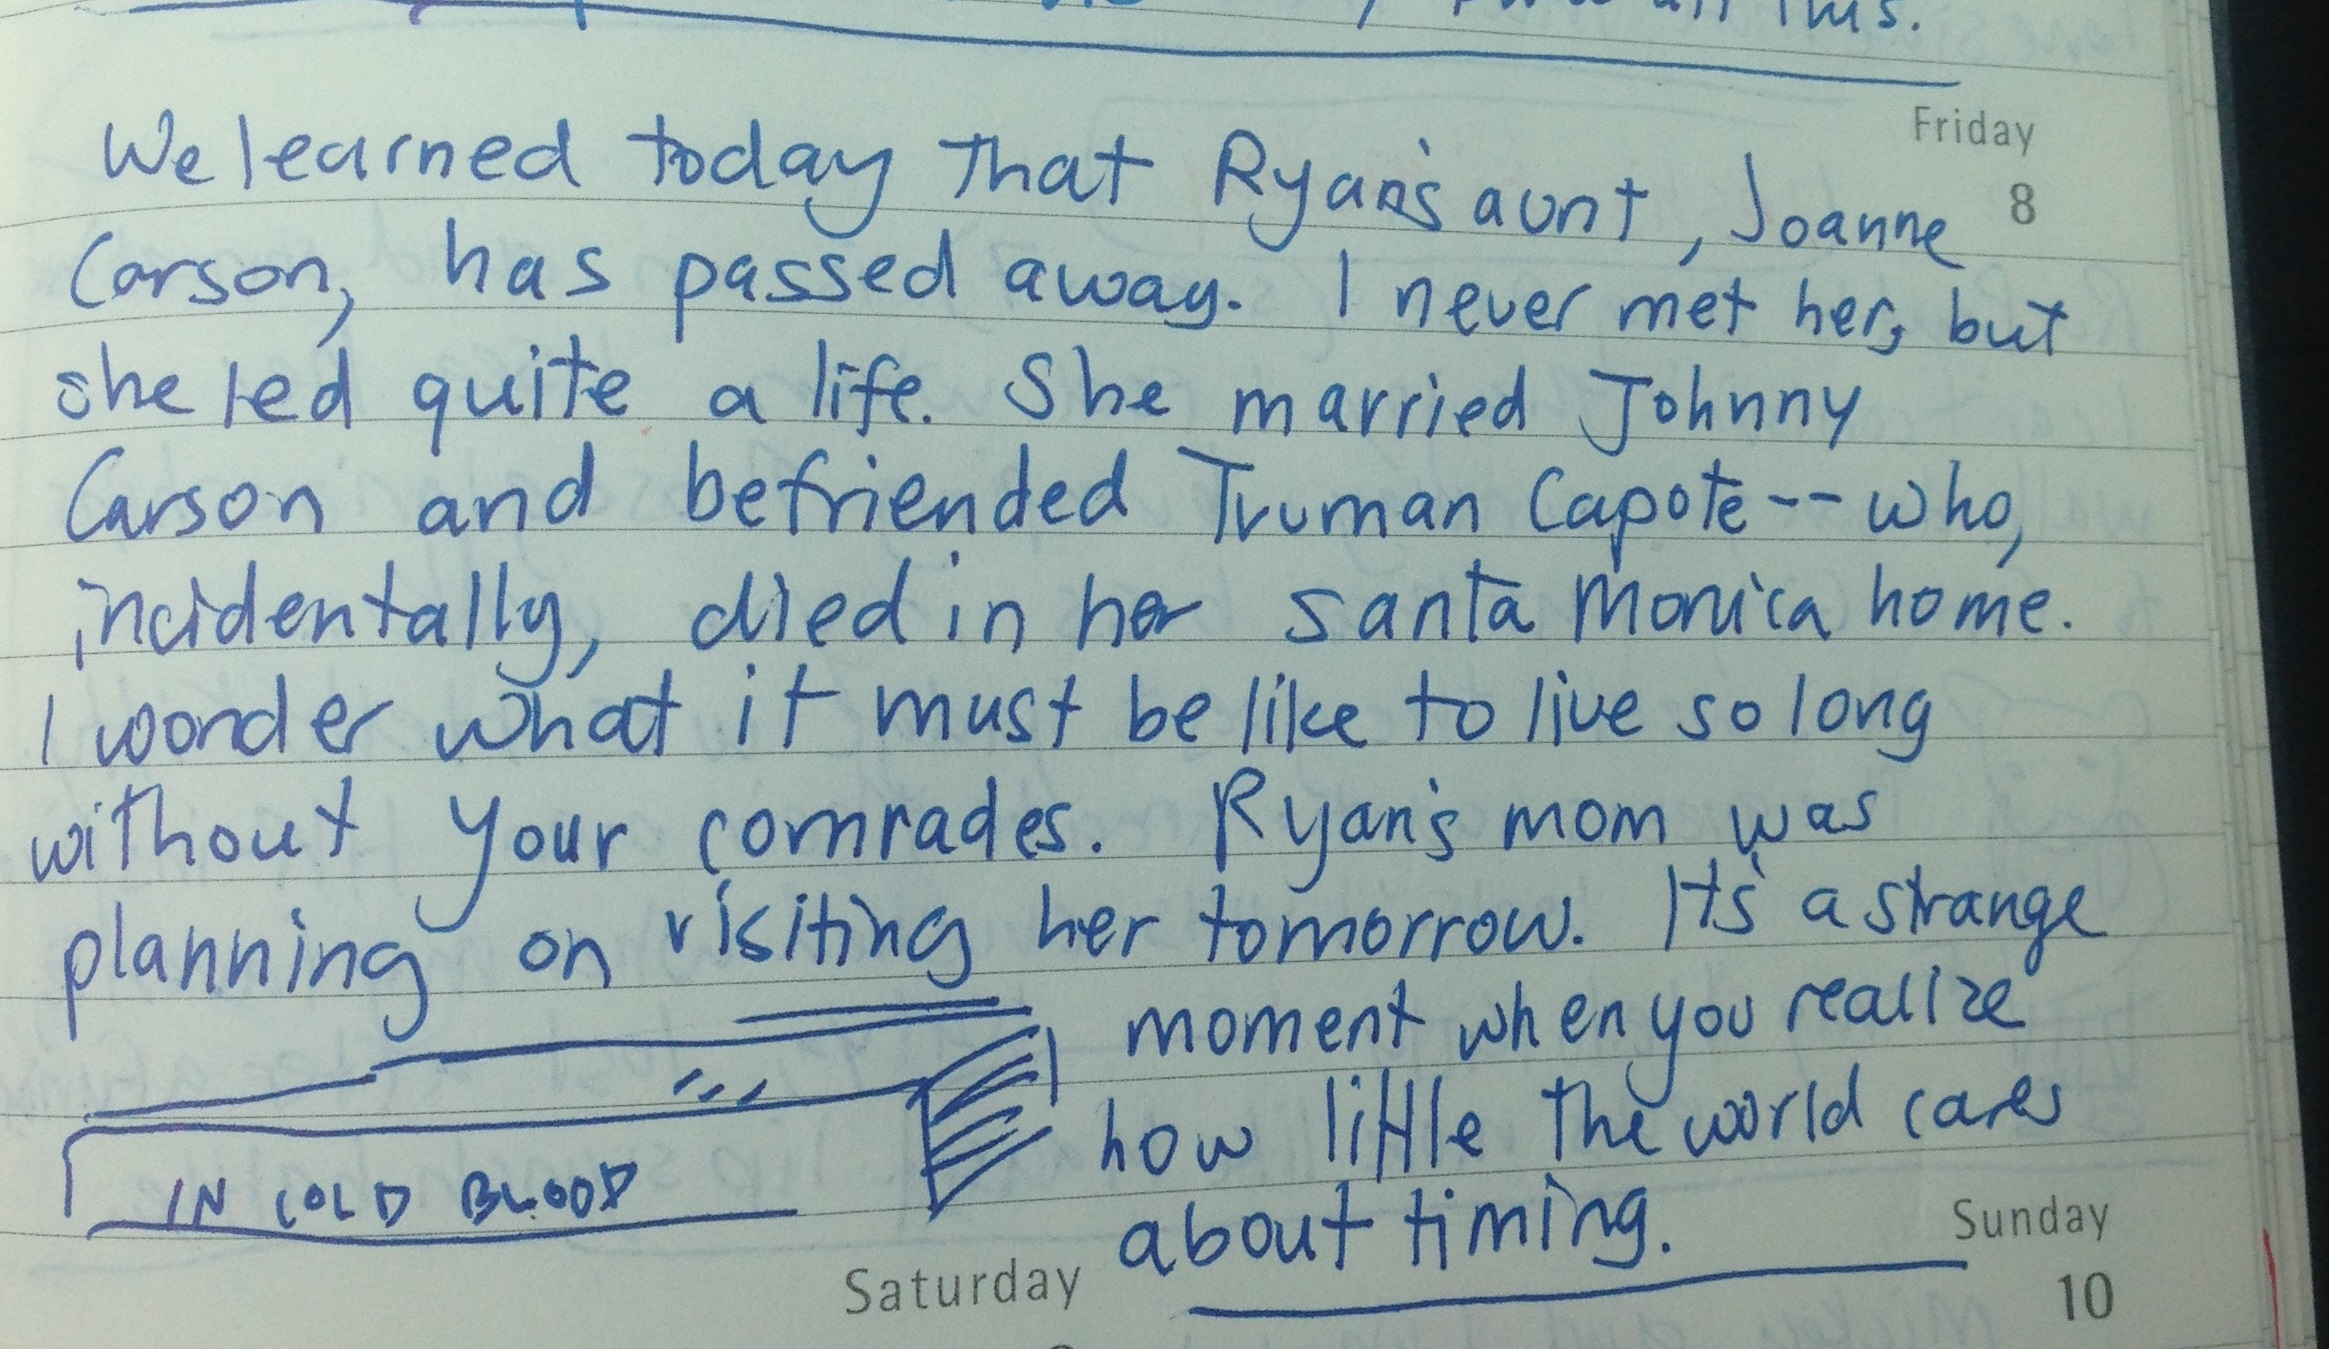 all this.
Friday
8
We learned today that Ryan's aunt, Joanne
Carson, has passed away. I never met her, but
she led quite a life. She married Johnny
Carson and befriended Truman Capote -- who,
incidentally, died in her Santa Monica home.
I wonder what it must be like to live so long
without your comrades. Ryan's mom was
planning on visiting her tomorrow. It's a strange
moment when you realize
how little the world cares
about timing.
IN COLD BLOOD
Saturday
Sunday
10